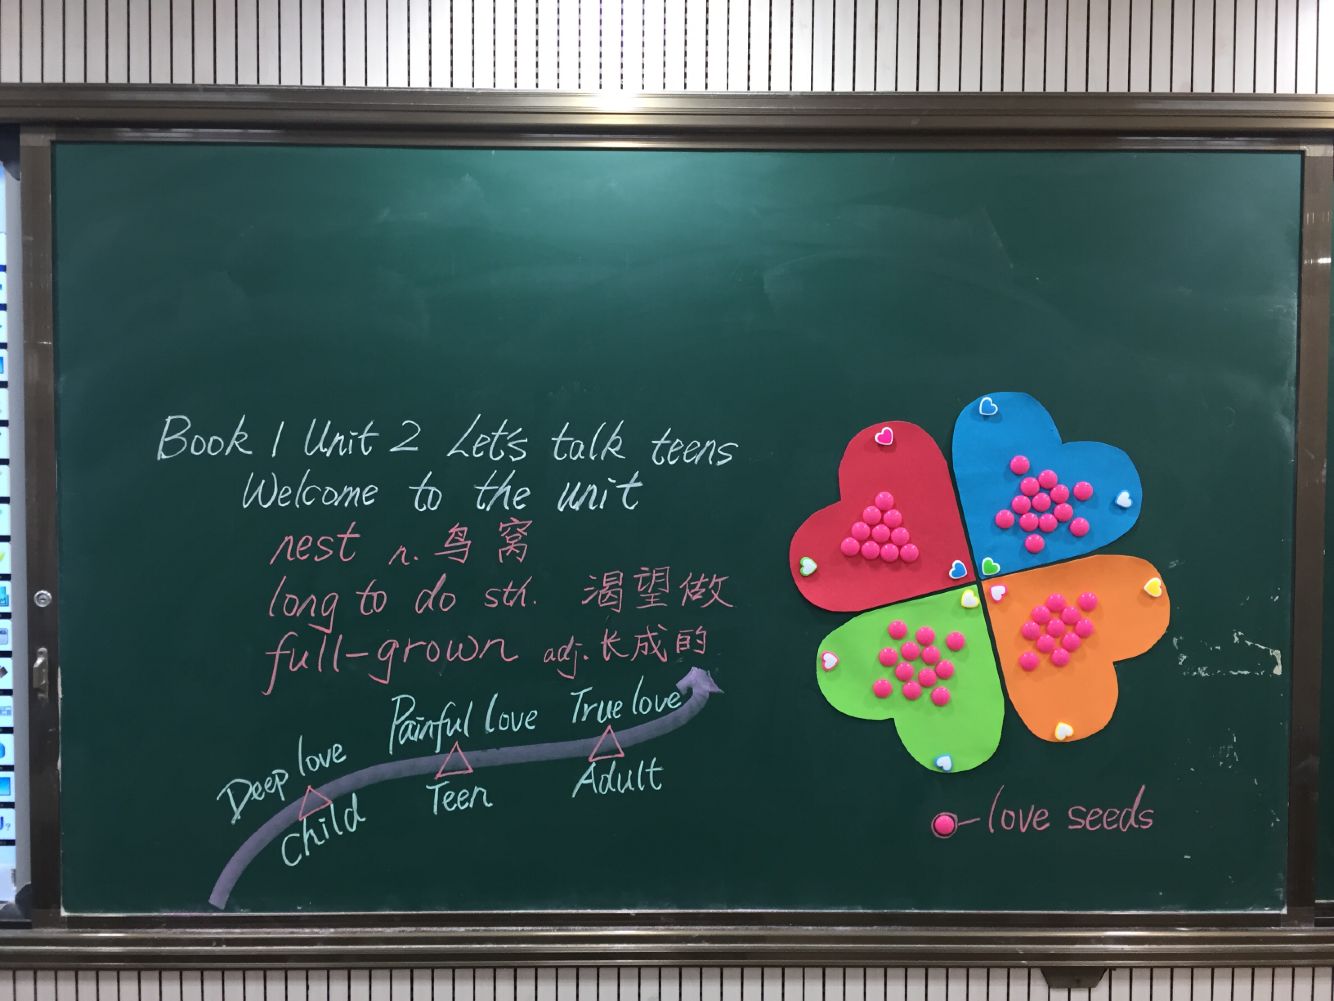 Book 1 Unit 2 Let's talk teens
Welcome to the unit
nest n. 鸟窝
long to do sth. 渴望做
full-grown adj. 长成的
Deep love
Painful love
True love
Child
Teen
Adult
love seeds